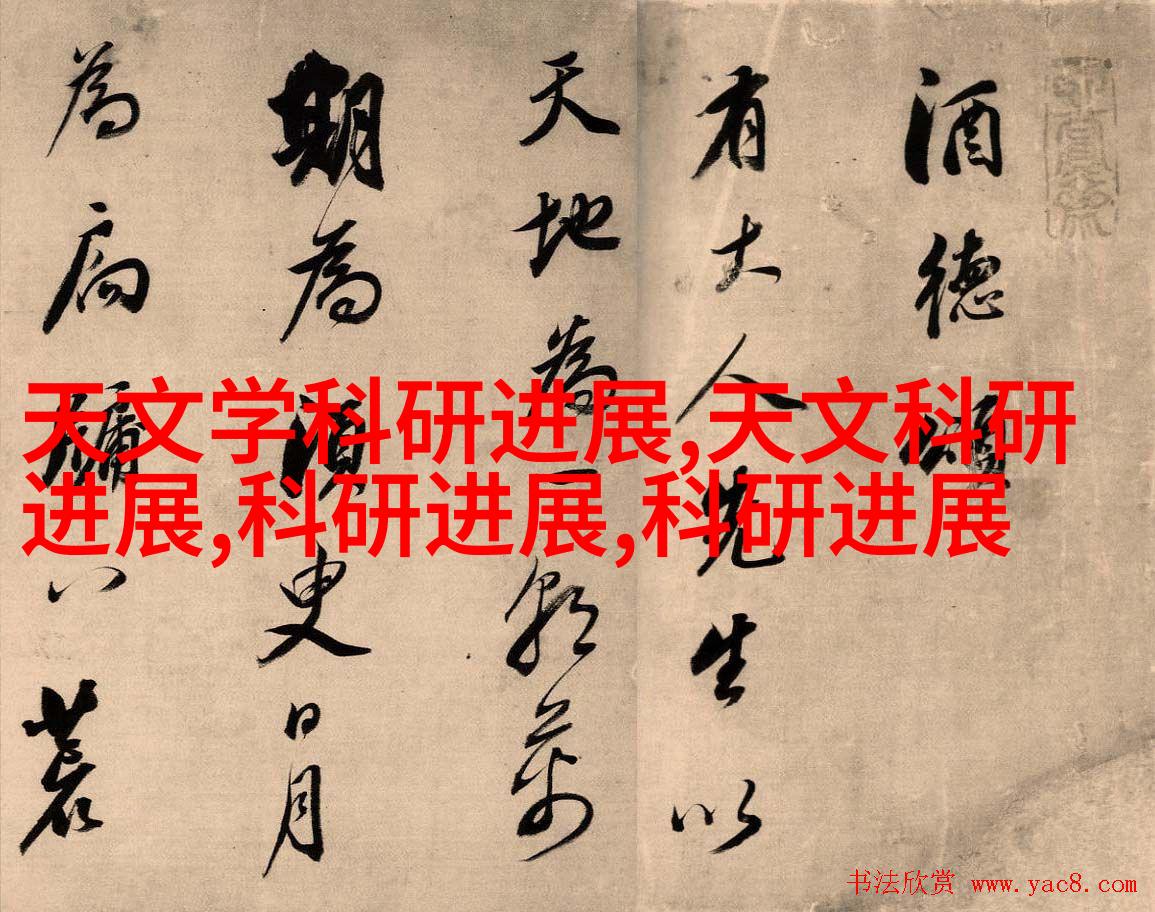 酒德頌
有大人先生以
天地為一朝萬
期為須臾日月
為扃牖八荒
天文学科研进展,天文科研
进展,科研进展,科研进展
书法欣赏 www.yac8.com